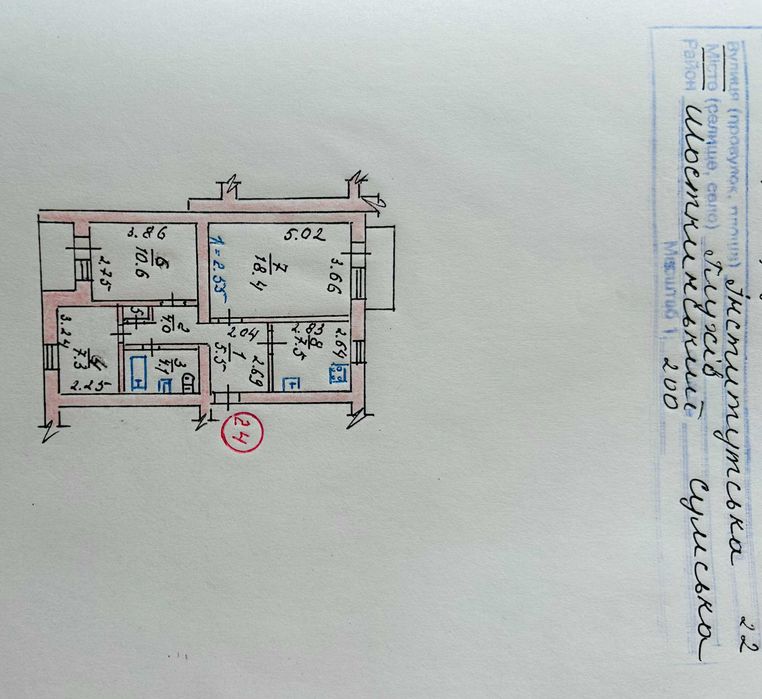 Вулиця (провулок, площа) Інститутська 22
Місто (селище, село) Глухів
Район Шосткинський Сумська
Масштаб 1: 200
3.86
6
10.6
2.75
5.02
7
18.4
3.66
h=2.55
3.24
4
7.3
2.25
5
2
4.0
3
2.04
1
5.5
2.69
2.83
8
7.5
2.64
24